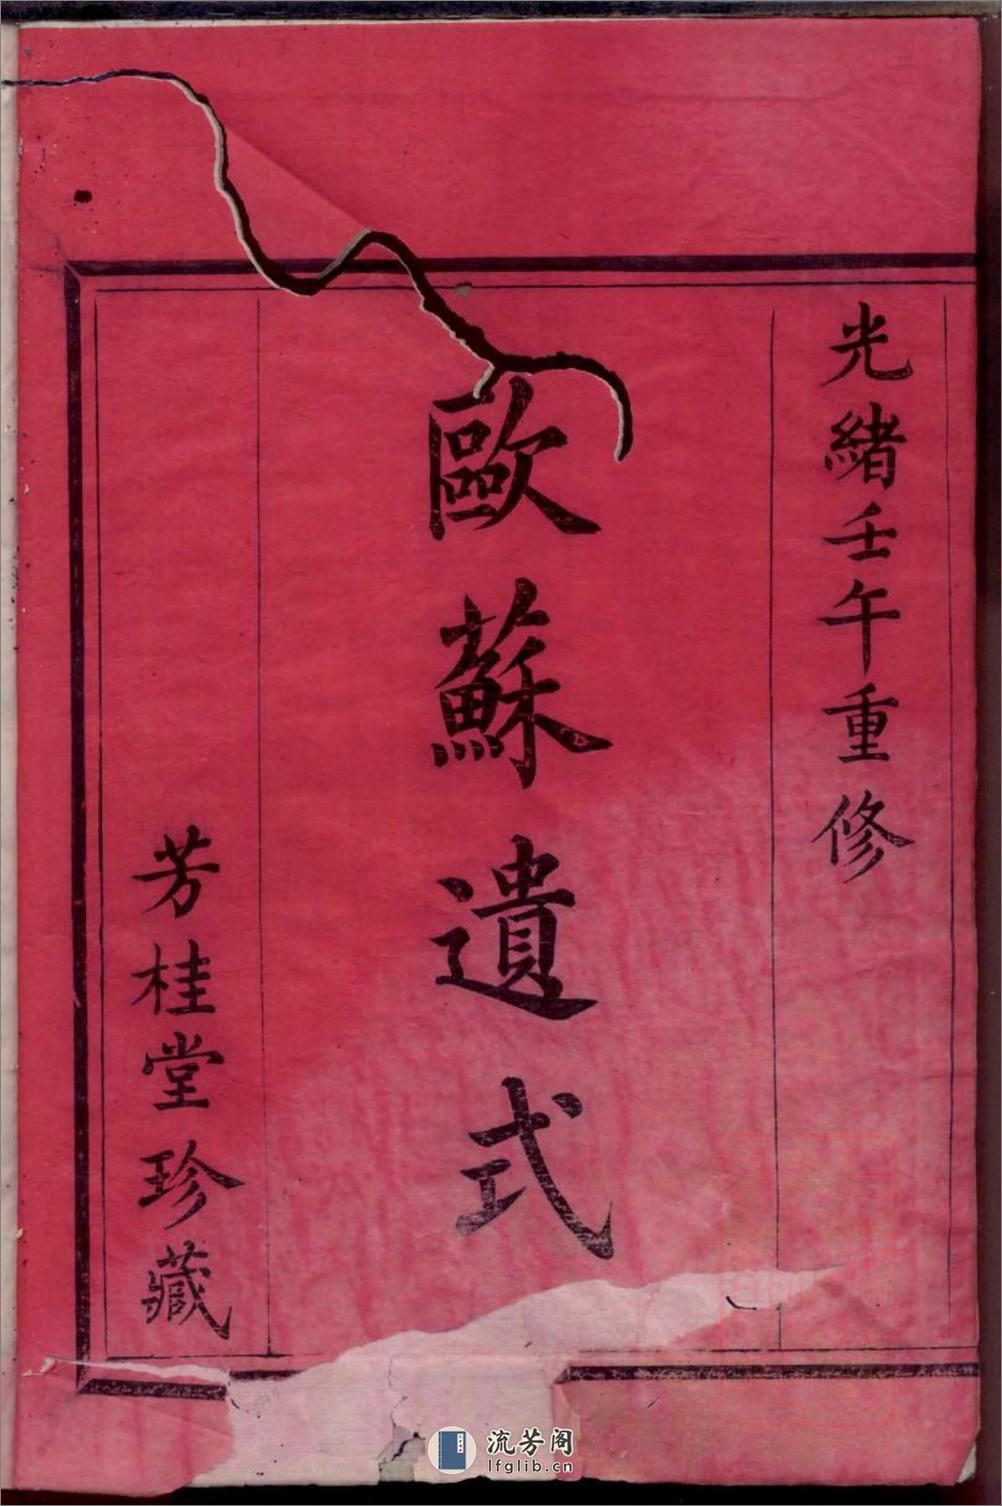 光緒壬午重修
歐蘇遺式
芳桂堂珍藏
流芳阁
lfglib.cn